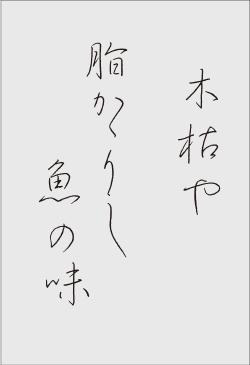 木枯や
脂かゝりし
魚の味